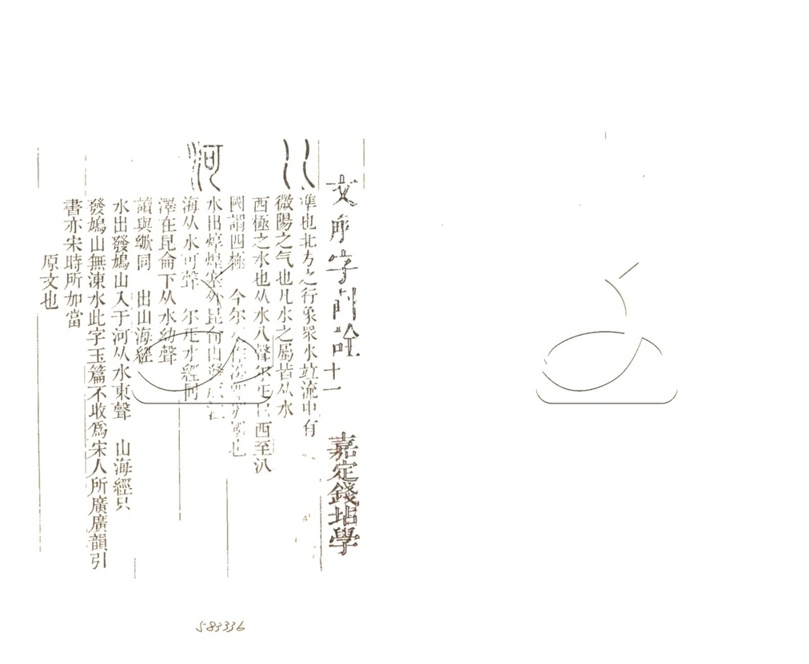 文解字斠詮十一 嘉定錢坫學
準也北方之行象眾水竝流中有
微陽之气也凡水之屬皆从水
西極之水也从水八聲尔疋曰西至汃
國謂四極 今尔
河
水出焞煌塞外昆侖山發
海从水可聲 尔疋水經同
澤在昆侖下从水幼聲
讀與 同 出山海經
水出發鳩山入于河从水東聲 山海經只
發鳩山無涷水此字玉篇不收爲宋人所廣廣韻引
書亦宋時所加當
原文也
583336